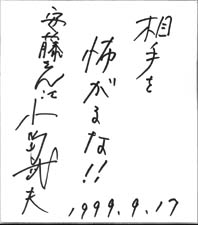 相手を
怖がるな!!
安藤さん江
小野武夫
1999.9.17